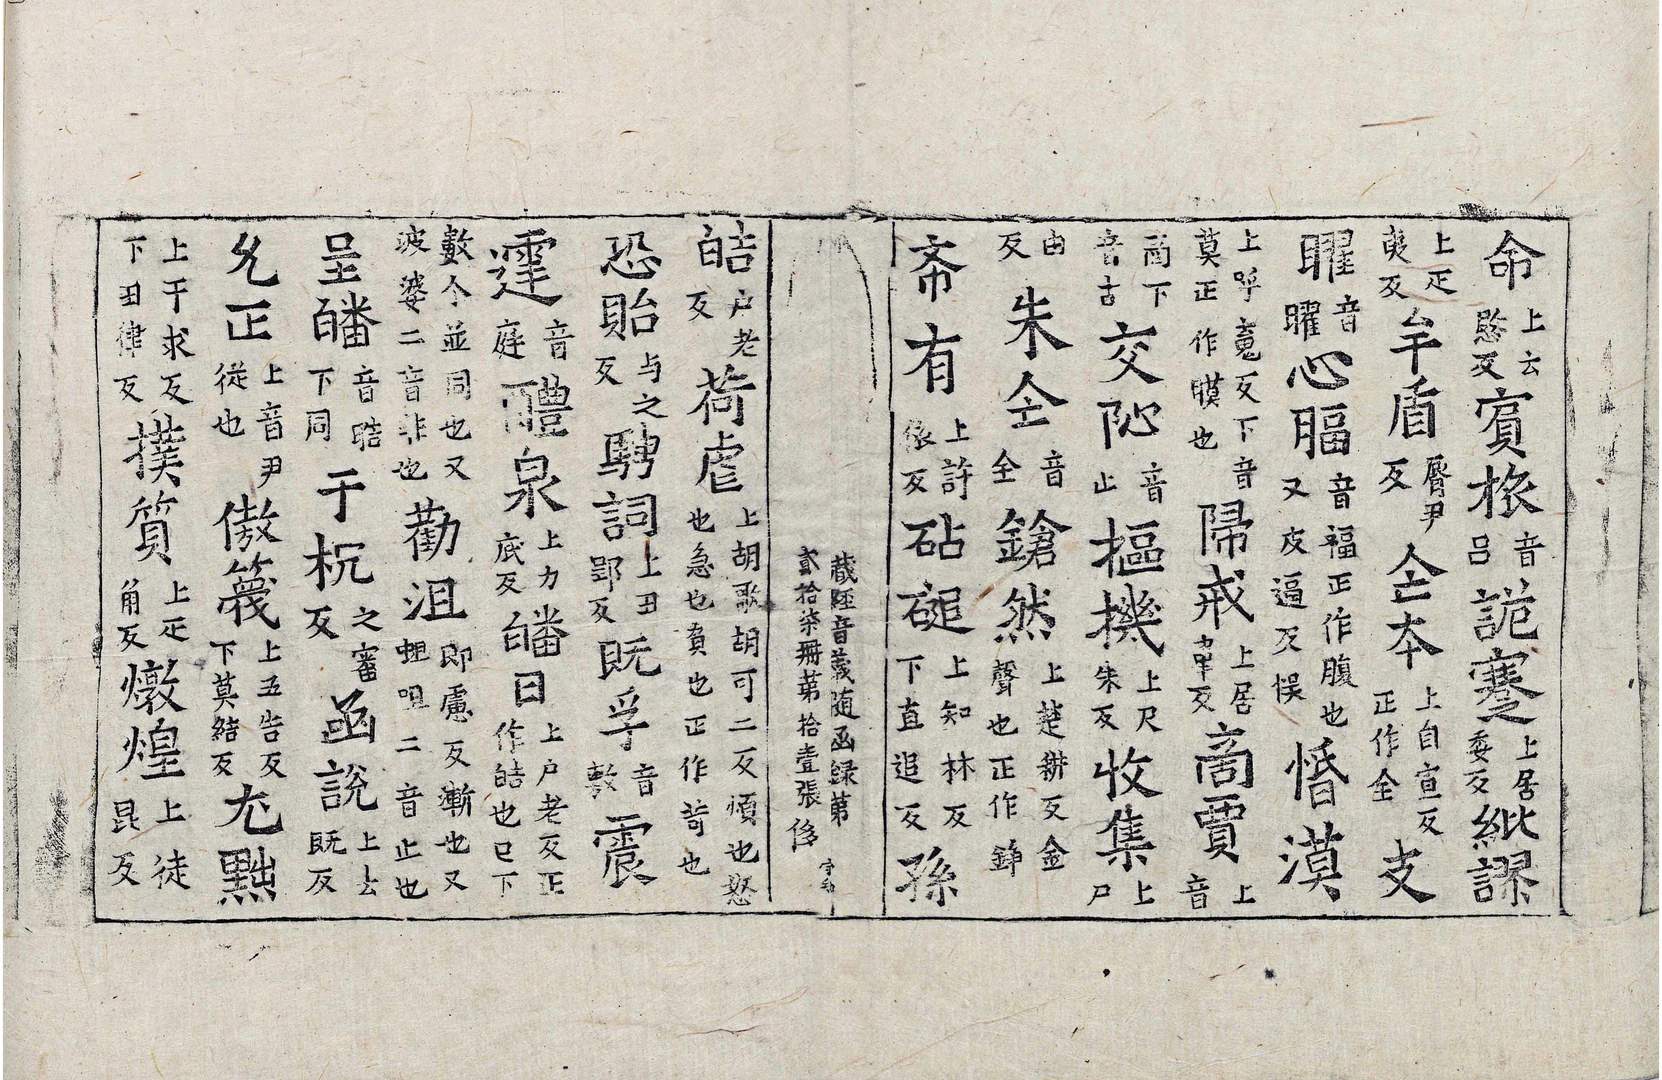 命上云愍反賔旅音吕詭蹇上居委反紕謬
上疋夷反牟盾脣尹反仝本上自宣反正作全支
曜音曜心腷音福正作腹也又皮逼反悮惛漠
上呼𡨕反下音莫正作瞙也𨻶戒上居𮧯反啇賈上音
啇下音古交阯音止樞機上尺朱反收集上尸
由反朱仝音全鎗然上楚耕反金聲也正作錚
斋有上許依反砧磓上知林反下直追反孫
藏經音義随函録第貳拾柒冊第拾壹張 侈字号
皓户老反荷虐上胡歌胡可二反煩也怒也急也負也正作苛也
恐貽与之反騁詞上丑郢反既孚音敷震
霆音庭醴泉上力底反皤日上户老反正作皓也巳下
數个並同也又波婆二音非也勸沮即慮反漸也又蛆咀二音止也
呈皤音晧下同于枕之審反函説上去既反
允正上音尹從也傲篾上五告反下莫結反尤㸃
上干求反下田律反撲質上疋角反燉煌上徒昆反